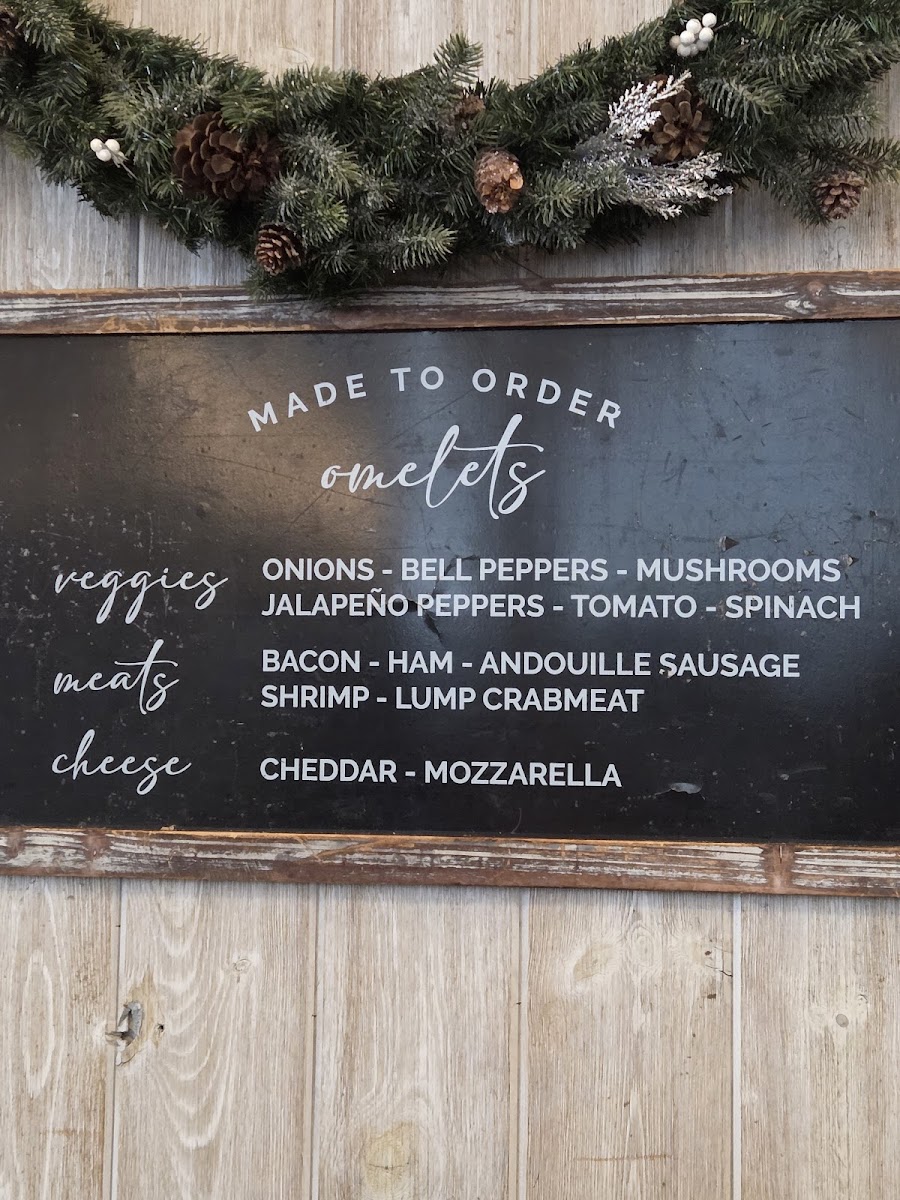 MADE TO ORDER
omelets
veggies
ONIONS - BELL PEPPERS - MUSHROOMS
JALAPEÑO PEPPERS - TOMATO - SPINACH
meats
BACON - HAM - ANDOUILLE SAUSAGE
SHRIMP - LUMP CRABMEAT
cheese
CHEDDAR - MOZZARELLA